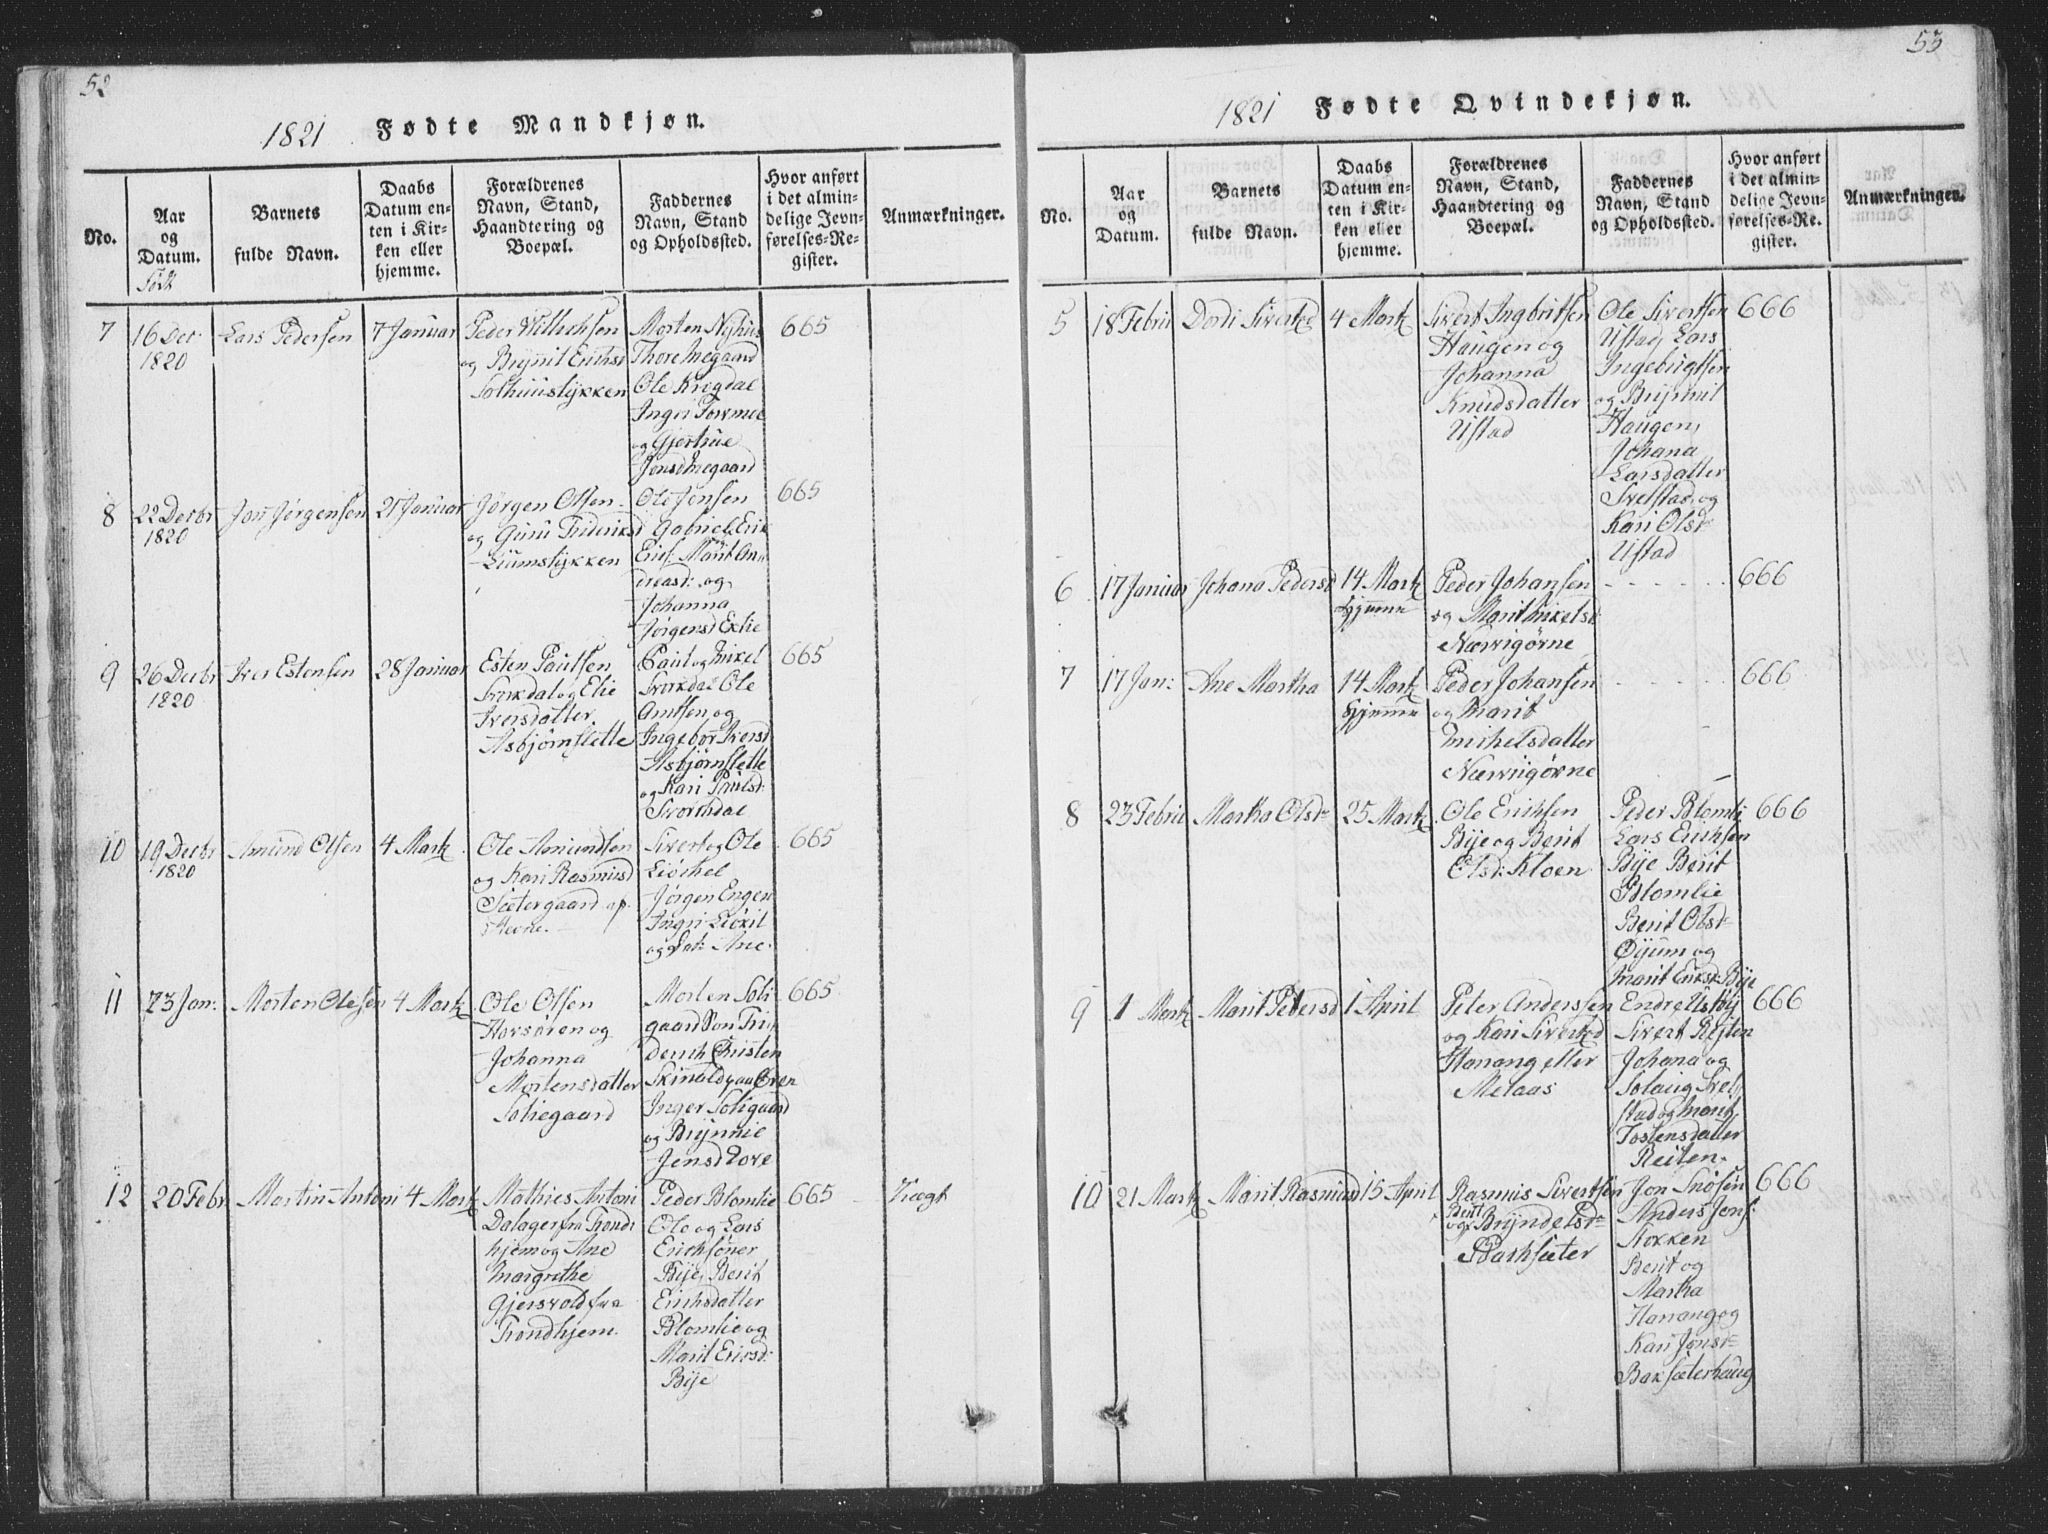 52
1821 Fødte Mandkjøn.
No.
Aar
og
Datum.
Født
Barnets
fulde Navn.
Daabs
Datum en-
ten i Kir-
ken eller
hjemme.
Forældrenes
Navn, Stand,
Haandtering og
Boepæl.
Faddernes
Navn, Stand
og Opholdssted.
Hvor anført
i det almin-
delige Jevn-
førelses-Re-
gister.
Anmærkninger.
7
16 Dec
1820
Lars Pedersen
7 Januar
Peder Willechsen
og Brynnil Erichsd
Solhuustykken
Morten Nyhuus
Thore Megaard
Ole Krogdal
Ingri
og Gjertrue
Jonsd Megaard
665
8
22 Decbr
1820
Jon Jørgensen
21 Januar
Jørgen Olsen
og Guru Friderichsd
Liumstykken
Ole Jensen
Gabriel Erik
Erics: Marit An,
dreasd: og
Johanna
Jørgensd Exlie
665
9
26 Decbr
1820
Iver Estensen
28 Januar
Esten Paulsen
Svorkdal og Elie
Iversdatter
Asbjørnslette
Paul og Mikel
Svorkdal Ole
Arntsen og
Ingebor Iversd
Asbjørnslette
og Kari Paulsd:
Svorchdal
665
10
19 Decbr
1820
Amund Olsen
4 Martz
Ole Amundsen
og Kari Rasmusd
Sætergaard
Sivert og Ole
Liøchel
Jørgen Engen
Ingri Liøkil
og Ane
665
11
23 Jan:
Morten Olesen
4 Martz
Ole Olsen
Horsøren og
Johanna
Mortensdatter
Soliegaard
Morten Soli
gaard Søn Fri,
derich Christen
Skinald
Inger Soligaard
og Brynnie
Jensd
665
12
20 Febr
Martin Antoni
4 Martz
Mathies Antoni
Dalager fra Trond
hjem og Ane
Margrethe
Gjersvold fra
Trondhjem
Peder Blomlie
Ole og Lars
Erichsøner
Bije, Berit
Erichsdatter
Blomlie og
Marit Ericsd:
Bije
665
Uægt
53
1821 Fødte Qvindekjøn.
No.
Aar
og
Datum.
Barnets
fulde Navn.
Daabs
Datum en-
ten i Kir-
ken eller
hjemme.
Forældrenes
Navn, Stand,
Haandtering og
Boepæl.
Faddernes
Navn, Stand
og Opholdssted.
Hvor anført
i det almin-
delige Jevn-
førelses-Re-
gister.
Anmærkninger.
5
18 Febru
Dordi Sivertsd
4 Martz
Sivert Ingbritsen
Haugen og
Johanna
Knudsdatter
Ustad
Ole Sivertsen
Ustad, Lars
Ingebrigtsen
og Brynnil
Haugen,
Johana
Larsdatter
Svelstad og
Kari Olsdr
Ustad
666
6
17 Januar
Johana Pedersd
14 Martz
Hjemme
Peder Johansen
og Marit Mikelsd
Nærvigørne
666
7
17 Jan:
Ane Martha
14 Martz
Hjemme
Peder Johansen
og Marit
Michelsdatter
Nærvigørne
666
8
23 Febru
Martha Olsdr
25 Martz
Ole Erichsen
Bije og Berit
Olsd: Kloen
Peder Blomli
Lars Erichsen
Bije Berit
Blomlie
Berit Olsdr
Øyum og
Marit Ericsd: Bije
666
9
1 Martz
Marit Petersd
1 April
Peter Anderssen
og Kari Sivertsd
Hanang eller
Melaas
Endre Ustøj
Sivert Reiten
Johana og
Solaug Svel,
stad og Marit
Tostensdatter
Reiten
666
10
21 Martz
Marit Rasmusd
15 April
Rasmus Sivertsen
og Berit Bryndelsdr
Bachsæter
Jon Snosen
Anders Jons:
Stokken
Berit og
Martha
Hanang og
Kari Jonsdr
Baksæterhaug
666